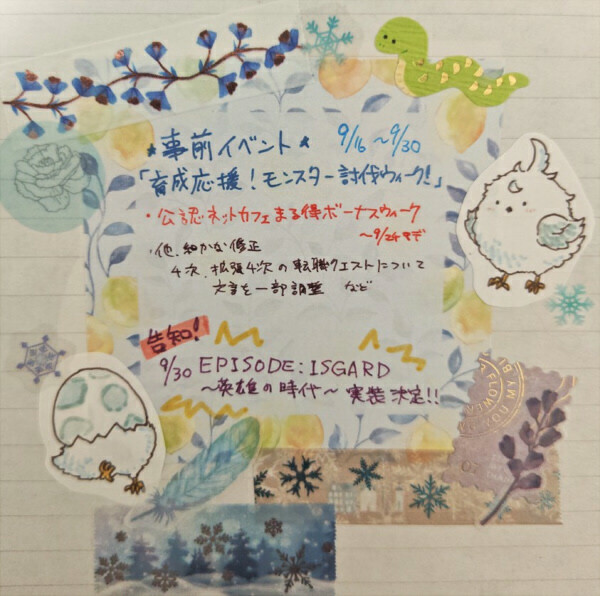 ★事前イベント★ 9/16～9/30
「育成応援！モンスター討伐ウィーク！」
・公認ネットカフェまる得ボーナスウィーク
～9/24まで
・他、細かな修正
4次、拡張4次の転職クエストについて
文言を一部調整 など
告知！
9/30 EPISODE:ISGARD
～英雄の時代～ 実装決定!!
FLOWER